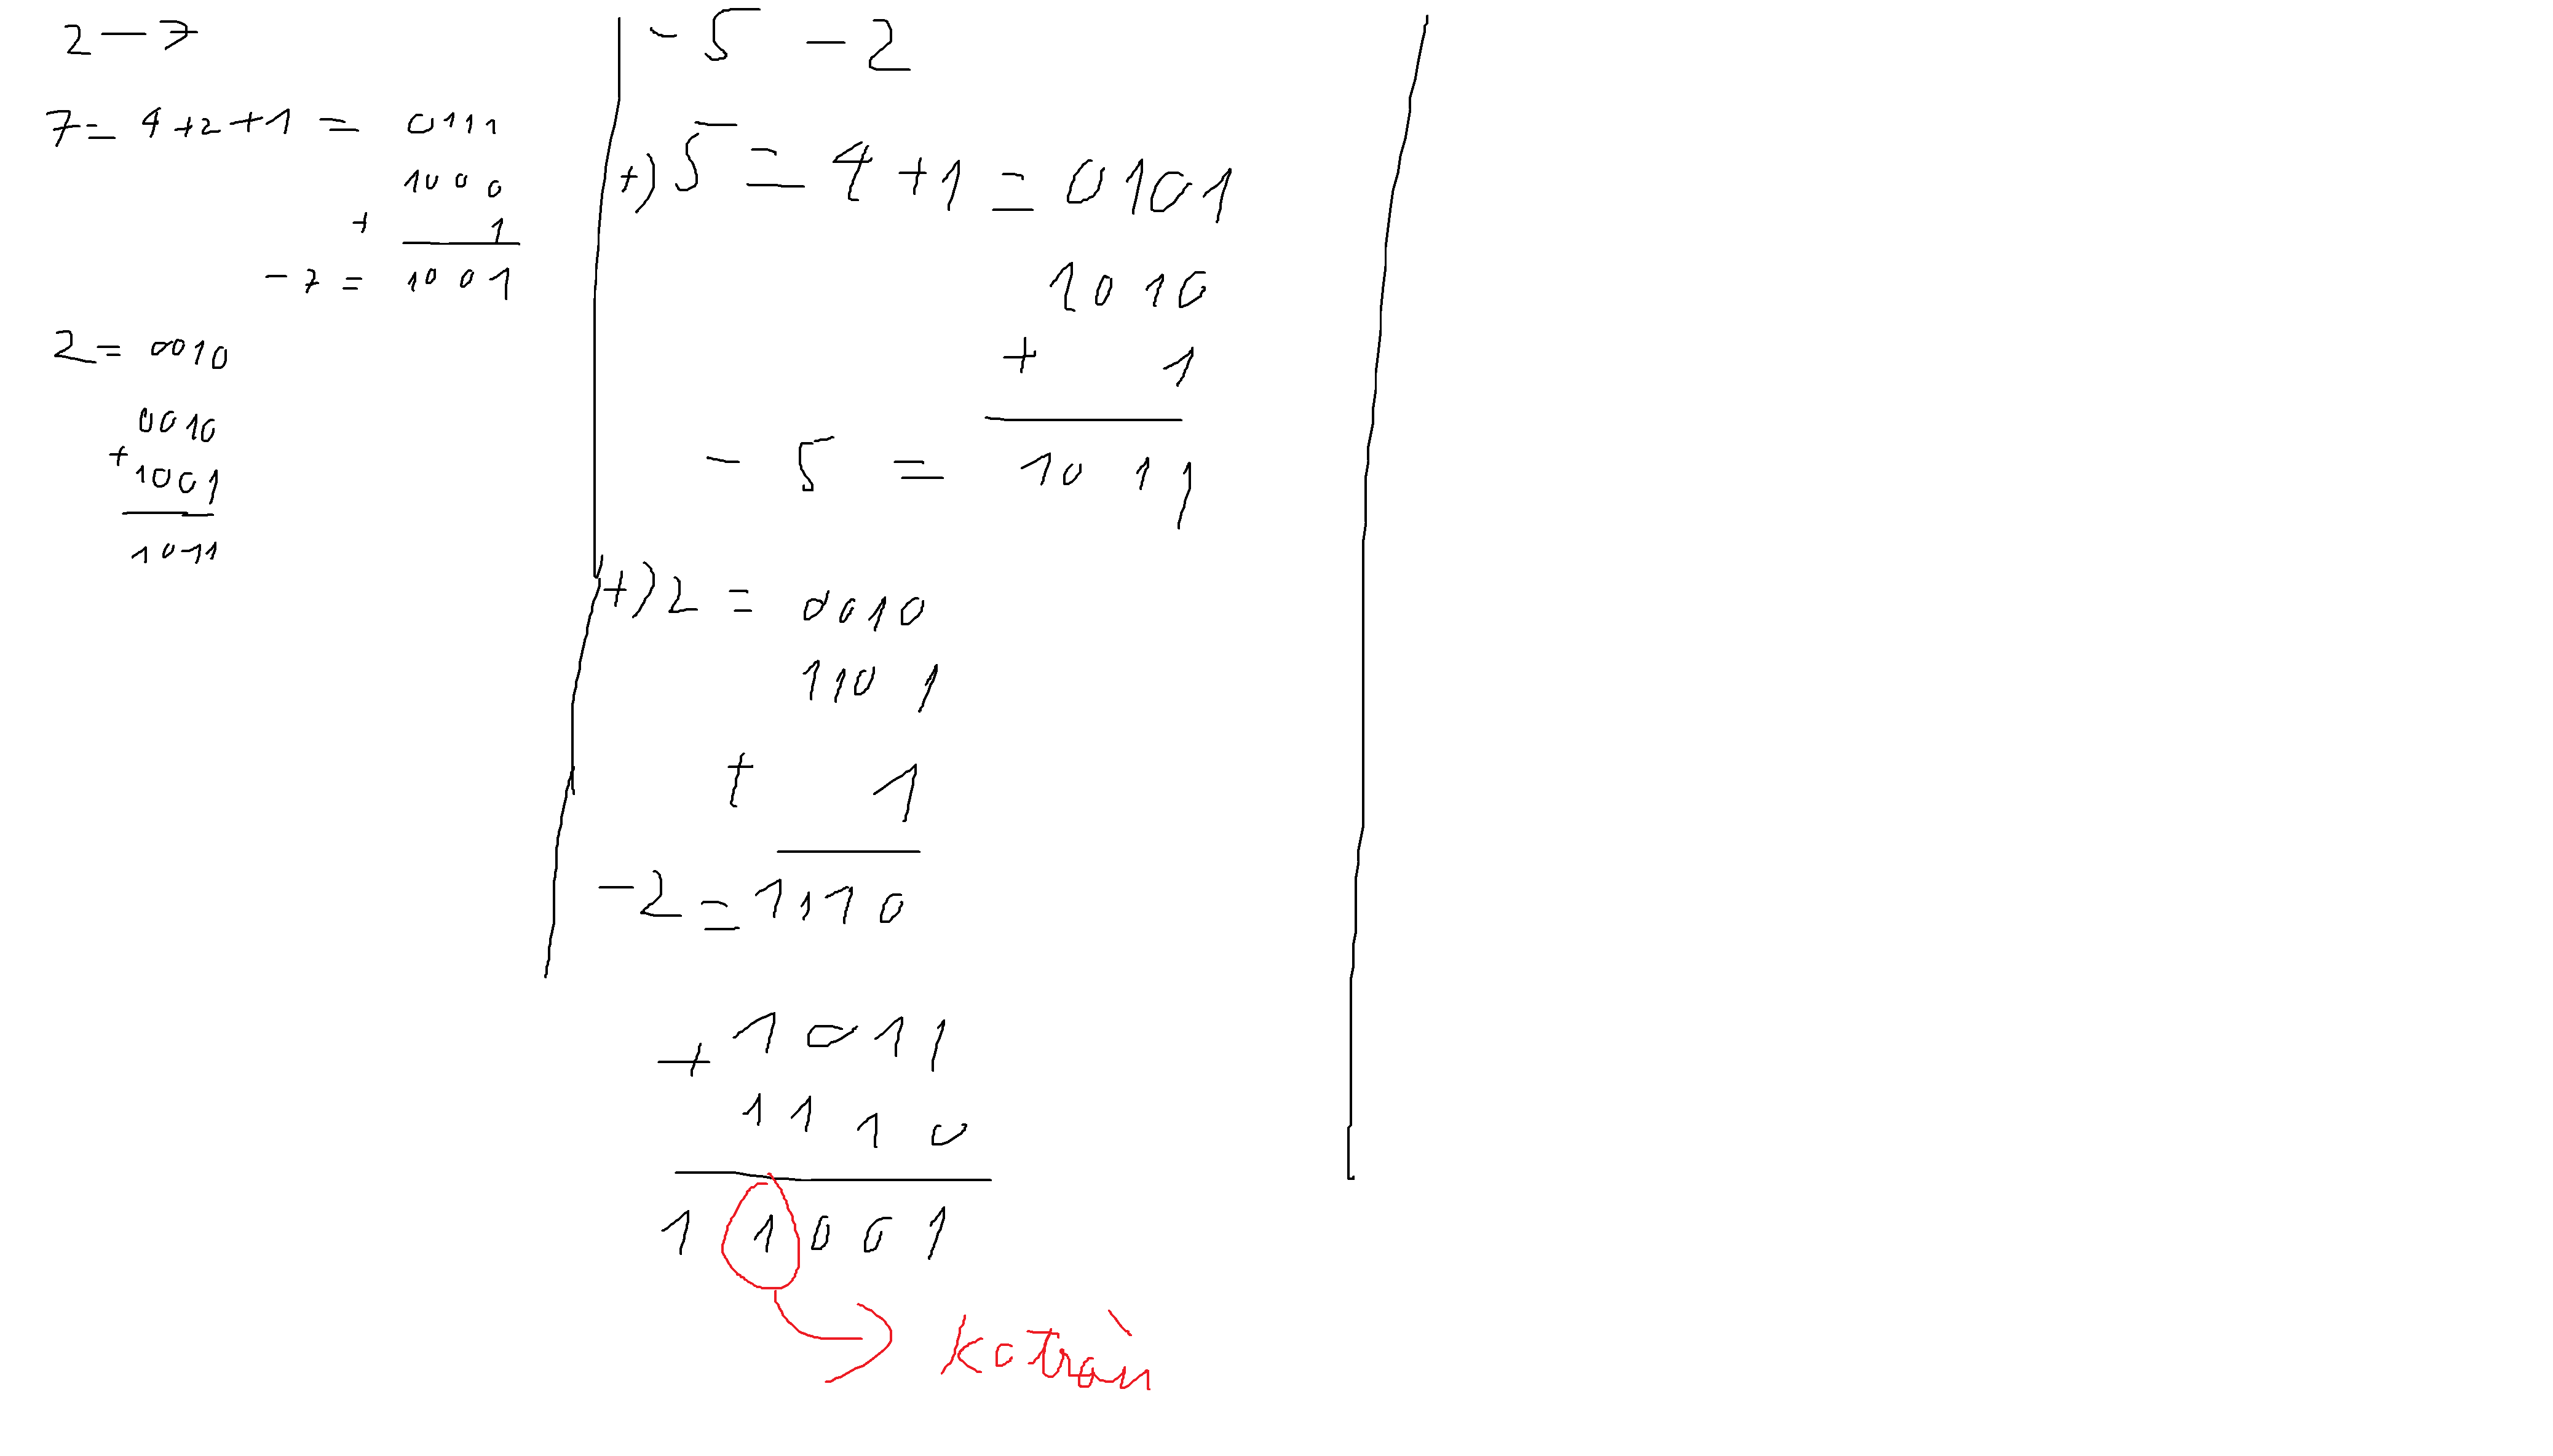 2 - 7
7 = 4 + 2 + 1 = 0111
1000
+ 1
- 7 = 1001
2 = 0010
0010
+
1001
1011
- 5 - 2
+) 5 = 4 + 1 = 0101
1010
+ 1
- 5 = 1011
+) 2 = 0010
1101
+ 1
- 2 = 1110
1011
+
1110
1 1001
ko tràn